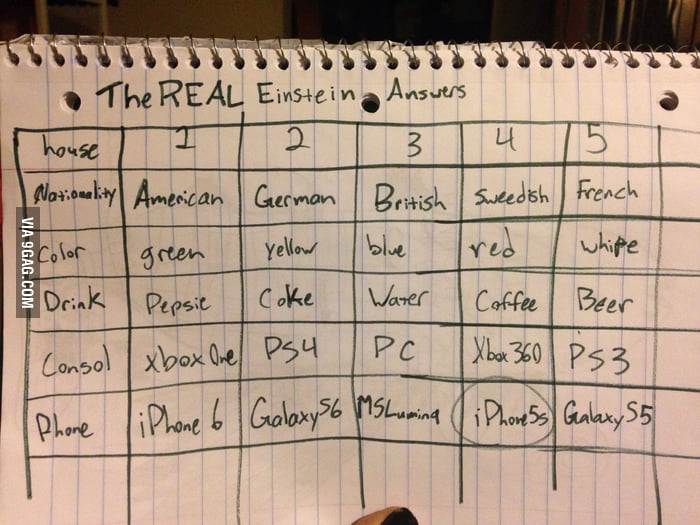 The REAL Einstein Answers
house 1 2 3 4 5
Nationality American German British Sweedish French
Color green yellow blue red whipe
Drink Pepsie Coke Water Coffee Beer
Consol xbox One PS4 PC Xbox 360 PS3
Phone iPhone 6 Galaxy S6 MS Lumina iPhone 5s Galaxy S5
VIA 9GAG.COM